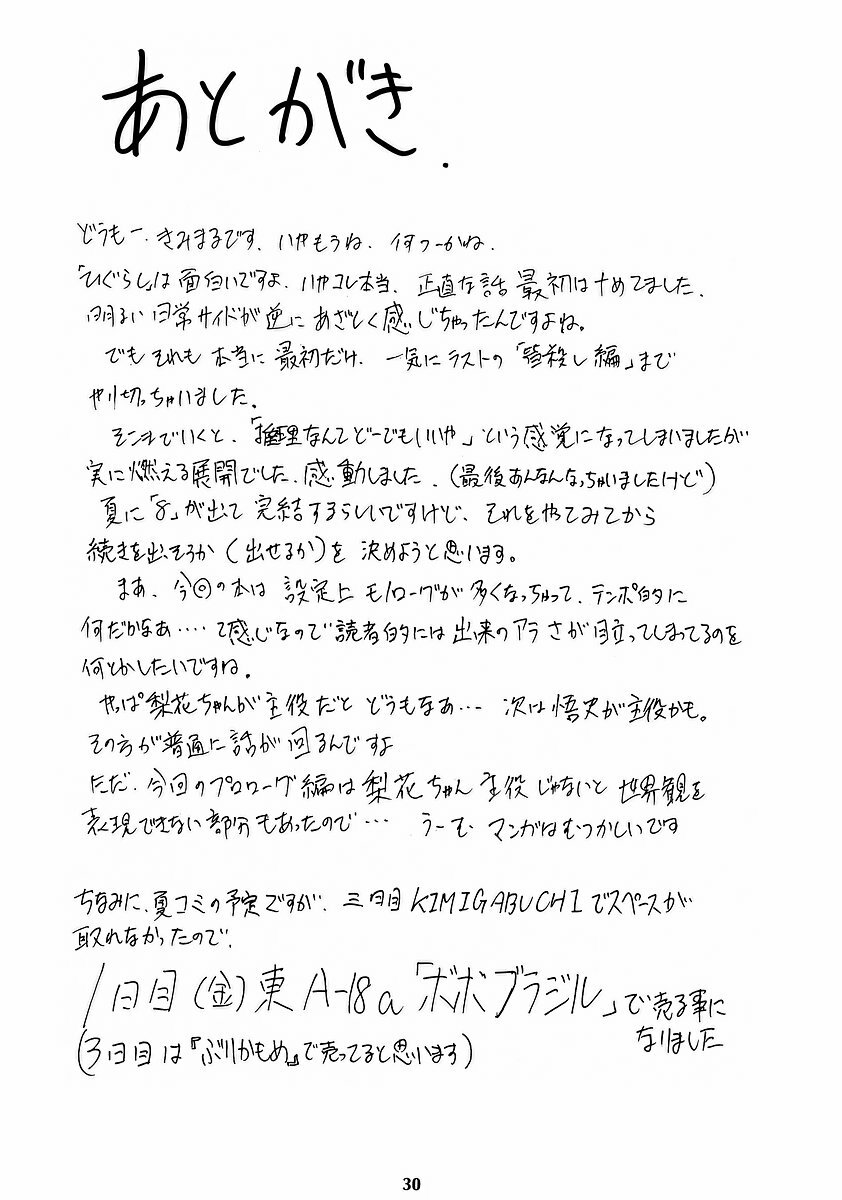 あとがき.
どうもー、きみまるです、いやもうね、何つーかね、
「ひぐらし」は面白いですよ、いやコレ本当、正直な話最初はナメてました、
明るい日常サイドが逆にあざとく感じちゃったんですよね。
でもそれも本当に最初だけ、一気にラストの「皆殺し編」まで
やり切っちゃいました。
そこまでいくと、「推理なんてどーでもいいや」という感覚になってしまいましたが
実に燃える展開でした、感動しました、(最後あんなんなっちゃいましたけど)
夏に「8」が出て完結するらしいですけど、それをやってみてから
続きを出そうか(出せるか)を決めようと思います。
まあ、今回の本は設定上モノローグが多くなっちゃって、テンポ的に
何だかなあ‥‥て感じなので読者的には出来のアラさが目立ってしまってるのを
何とかしたいですね。
やっぱ梨花ちゃんが主役だとどうもなあ… 次は悟史が主役かも。
その方が普通に話が回るんですよ
ただ、今回のプロローグ編は梨花ちゃん主役じゃないと世界観を
表現できない部分もあったので… うーむ マンガはむつかしいです
ちなみに、夏コミの予定ですが、三日目KIMIGABUCHIでスペースが
取れなかったので、
1日目(金)東A-18a「ボボブラジル」で売る事に
なりました
(3日目は『ぶりかもめ』で売ってると思います)
30